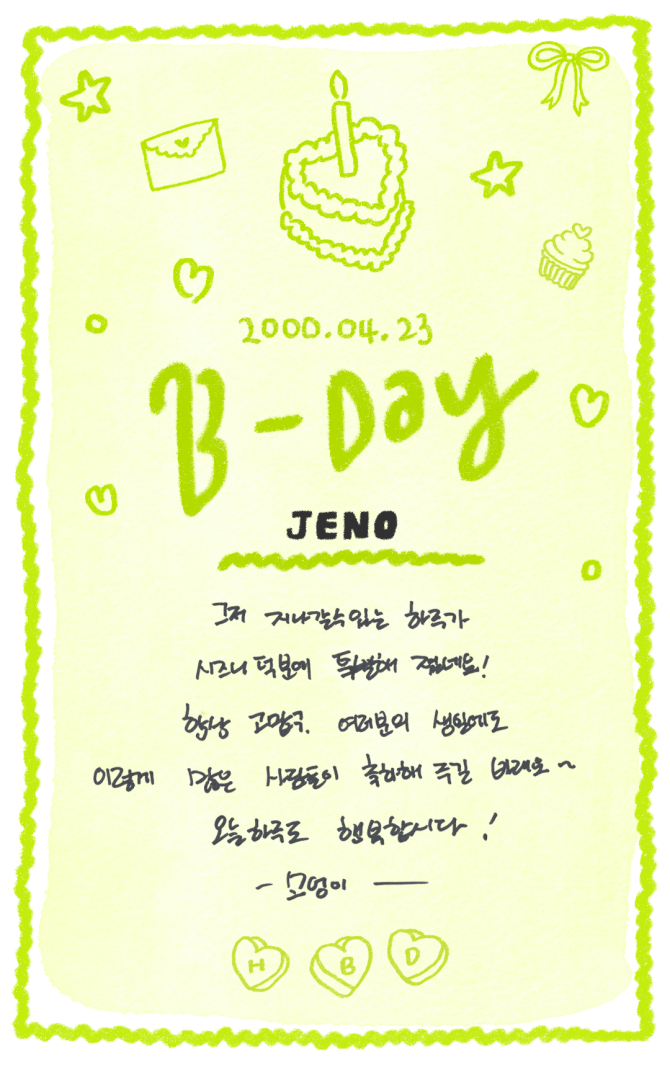 2000.04.23
B-Day
JENO
그저 지나갈수있는 하루가
시즈니 덕분에 특별해 졌네요!
항상 고맙구. 여러분의 생일에도
이렇게 많은 사람들이 축하해 주길 바래요~
오늘하루도 행복합시다!
- 모덩이 —
H B D